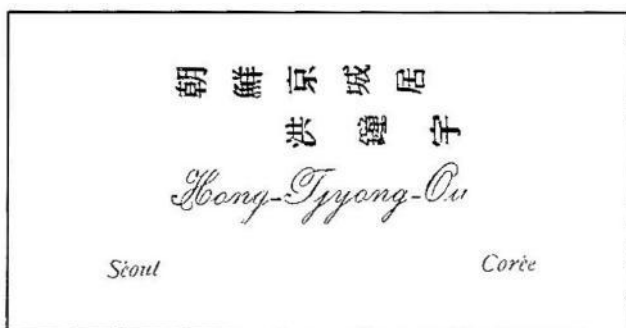 朝鮮京城居
洪鐘宇
Hong-Tjyong-Ou
Séoul Corée